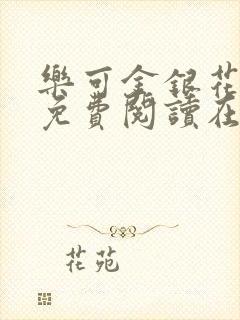 樂可金銀花
免費閱讀在
花苑